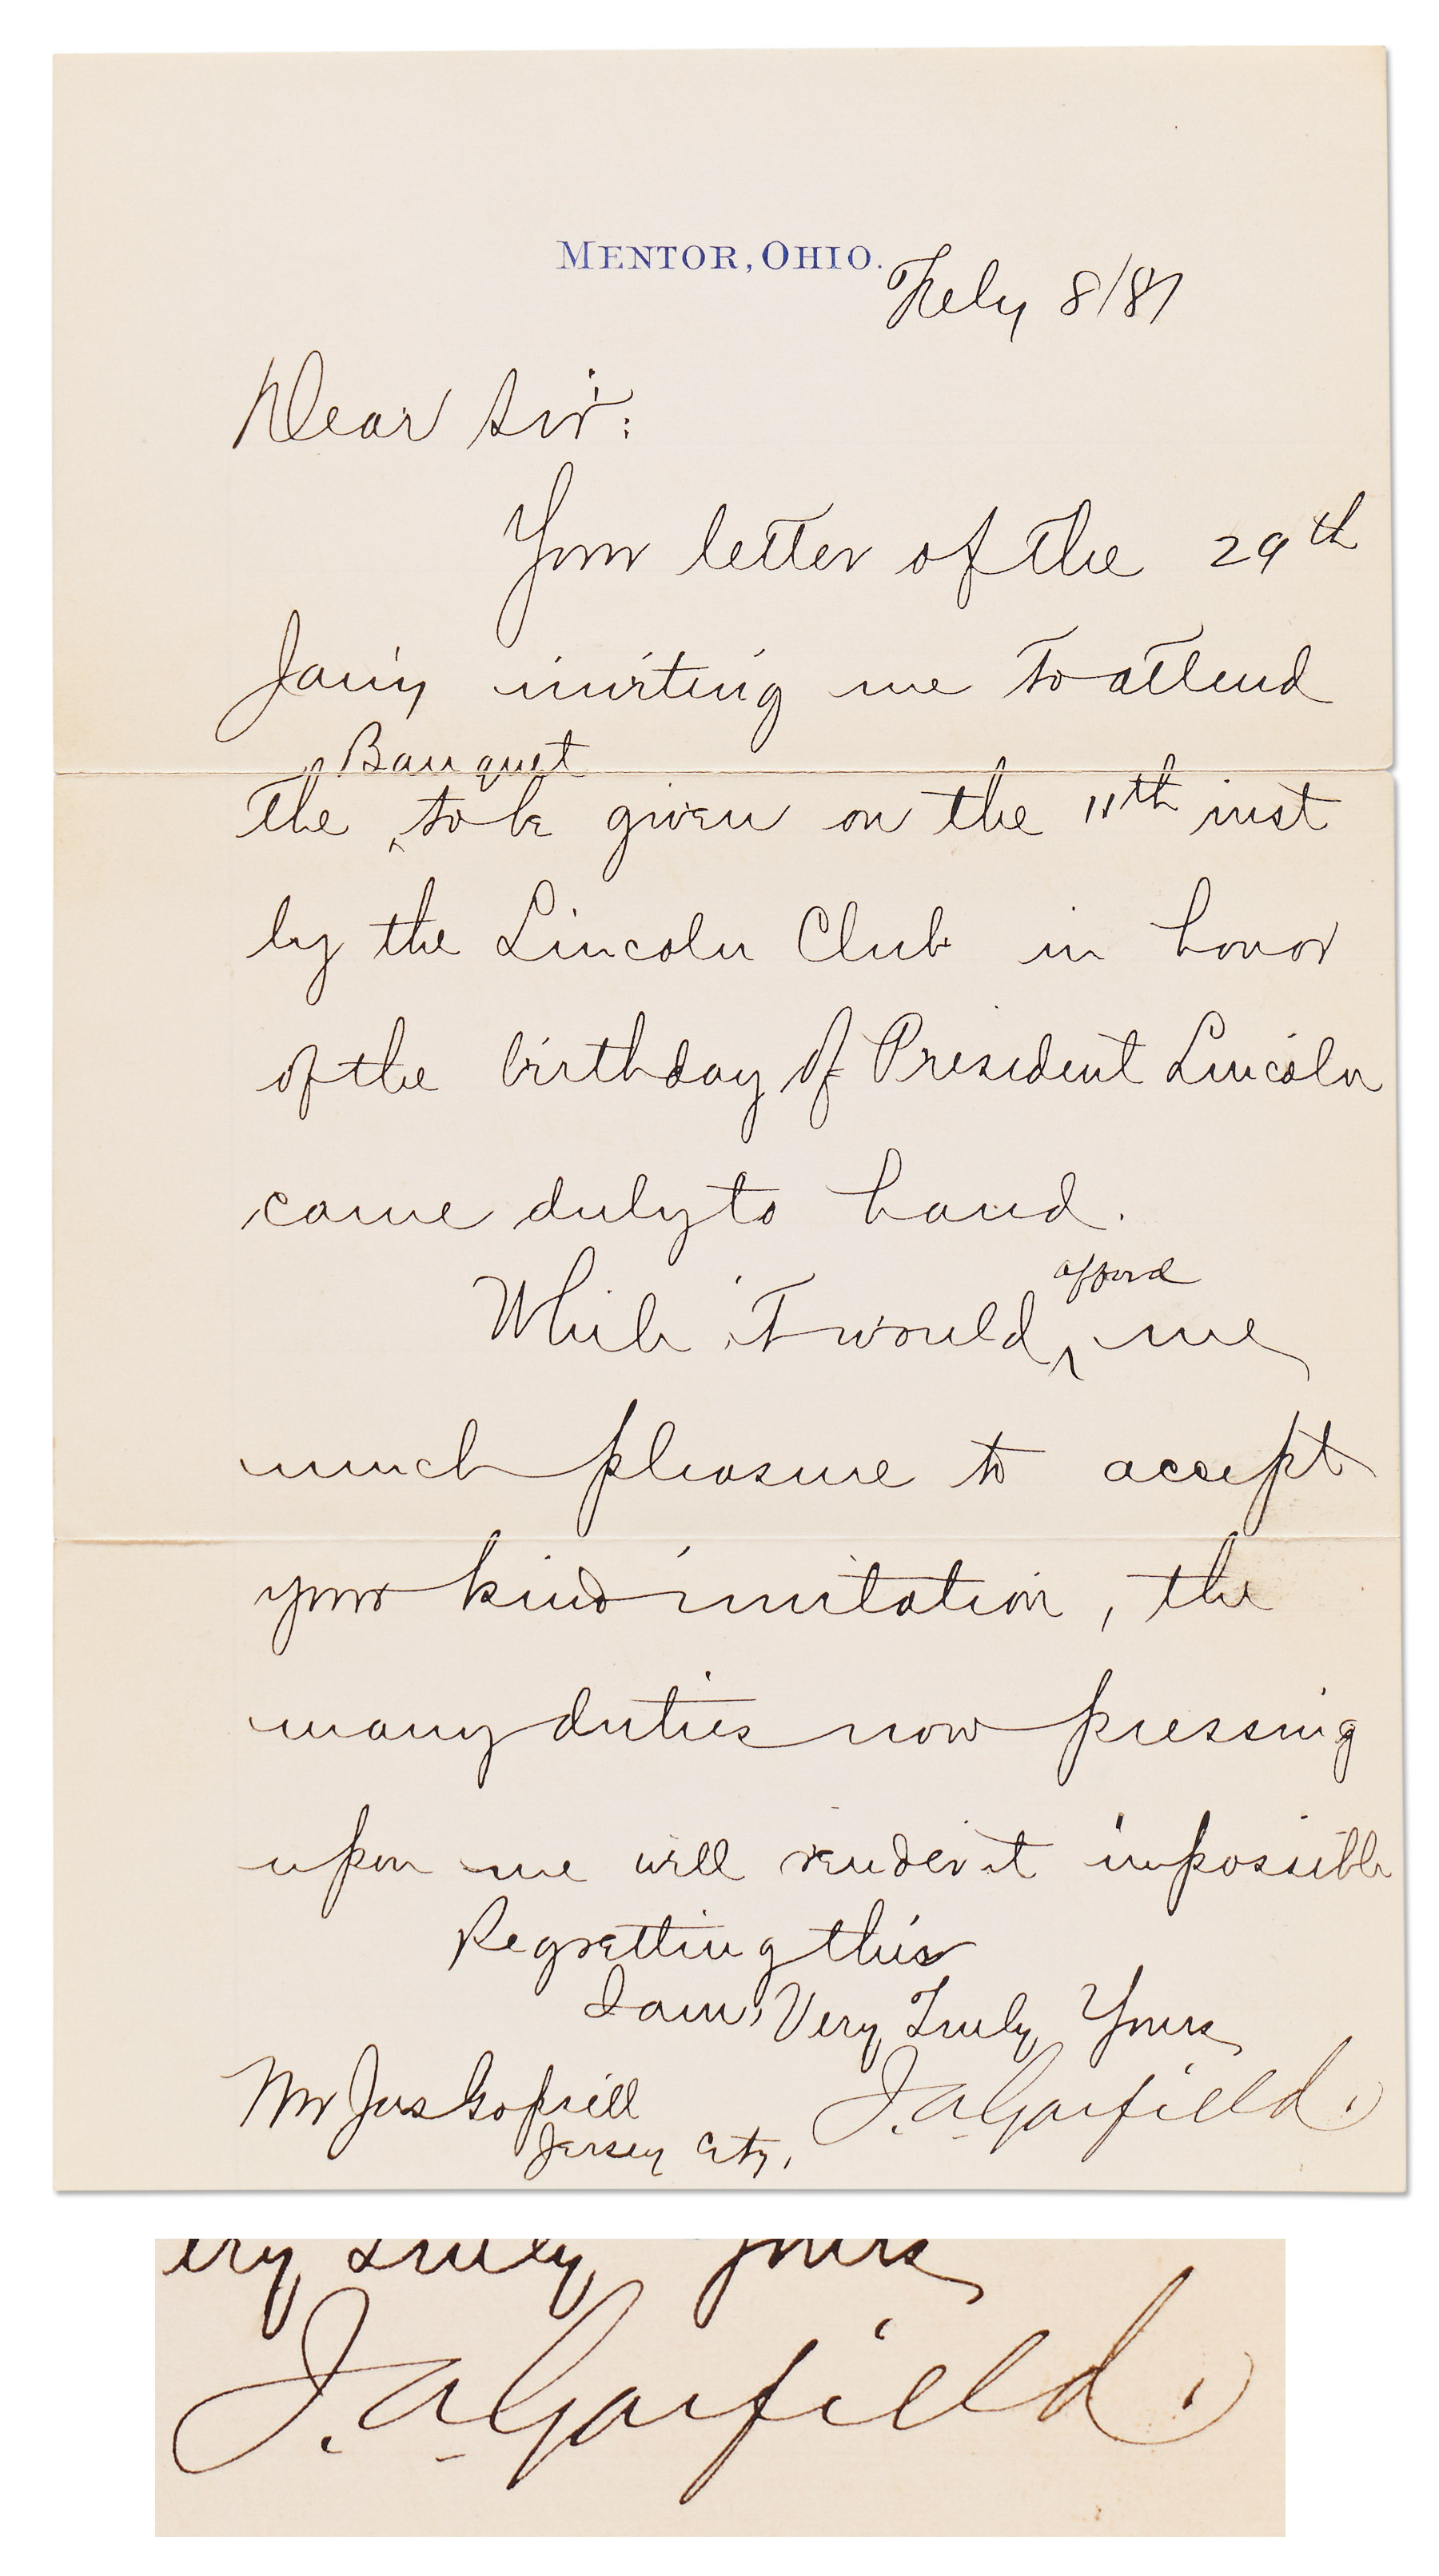 MENTOR, OHIO.
Feby 8/81
Dear Sir:
Your letter of the 29th
Jan'y inviting me to attend
Banquet
the ‸ to be given on the 11th inst
by the Lincoln Club in honor
of the birthday of President Lincoln
came duly to hand.
afford
While it would ‸ me
much pleasure to accept
your kind invitation, the
many duties now pressing
upon me will render it impossible
Regretting this
I am, Very Truly Yours
J. A. Garfield.
Mr Jas Gopsill
Jersey City.
ery Truly Yours
J. A. Garfield.